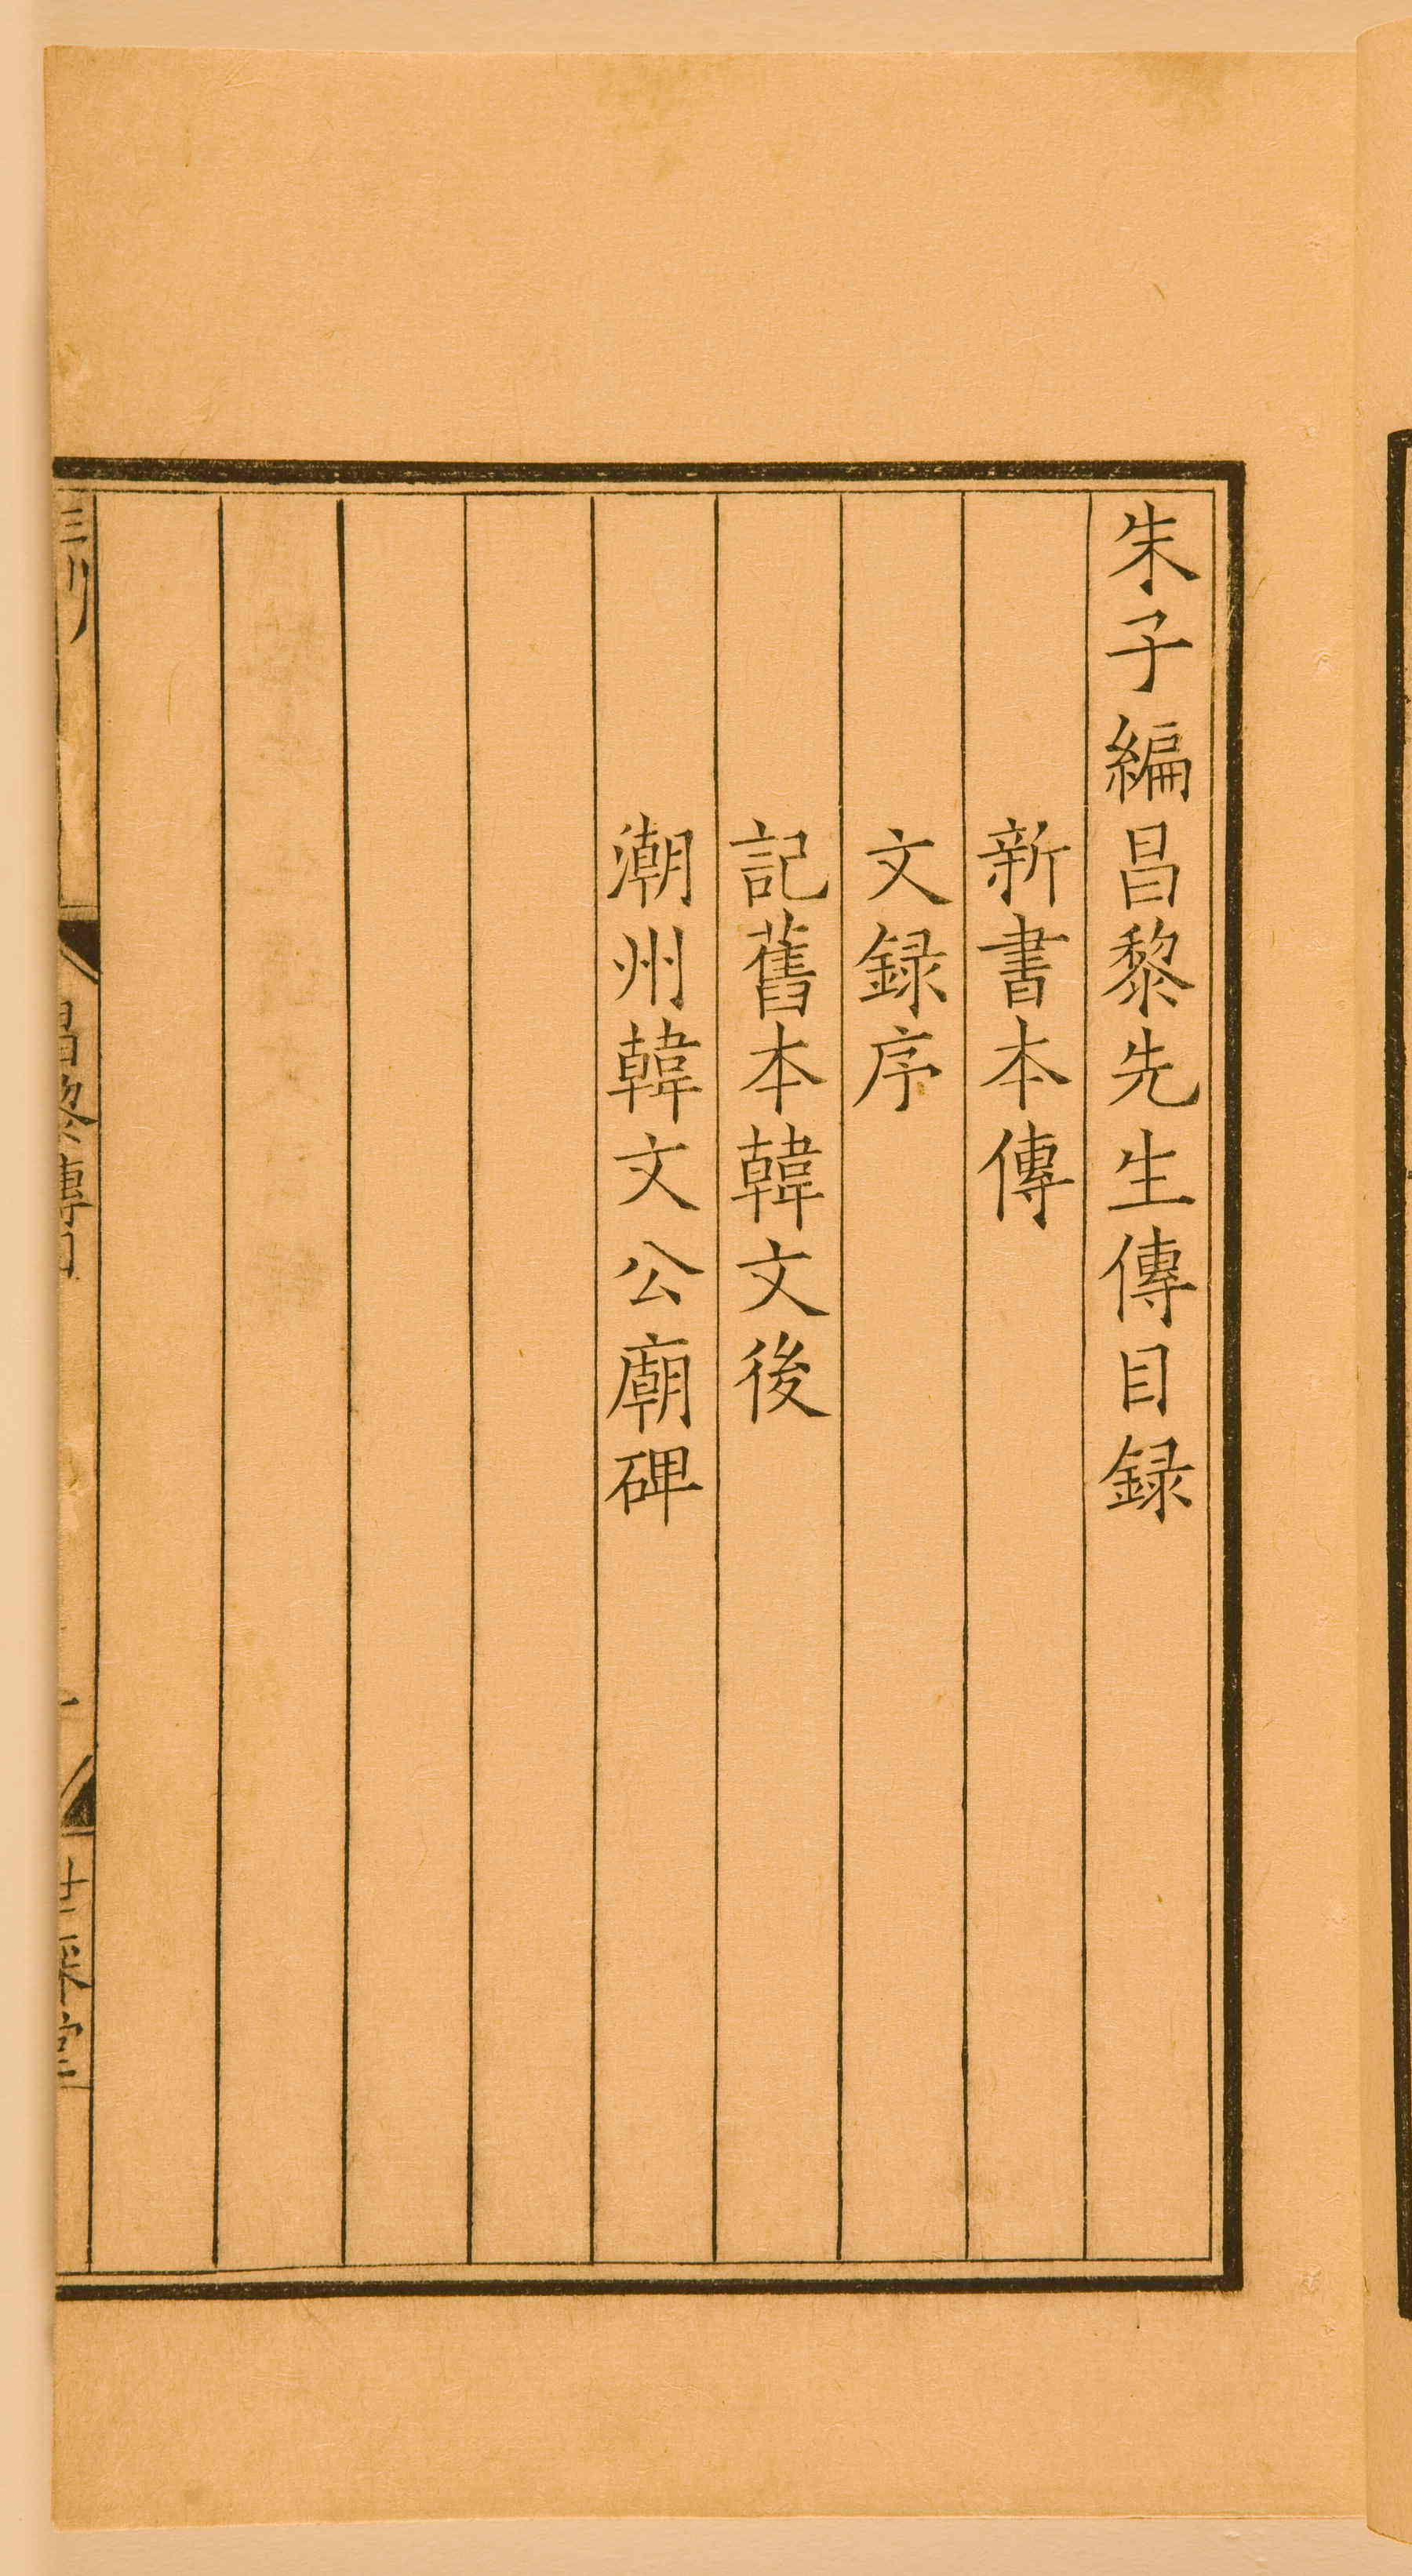 朱子編昌黎先生傳目録
新書本傳
文録序
記舊本韓文後
潮州韓文公廟碑